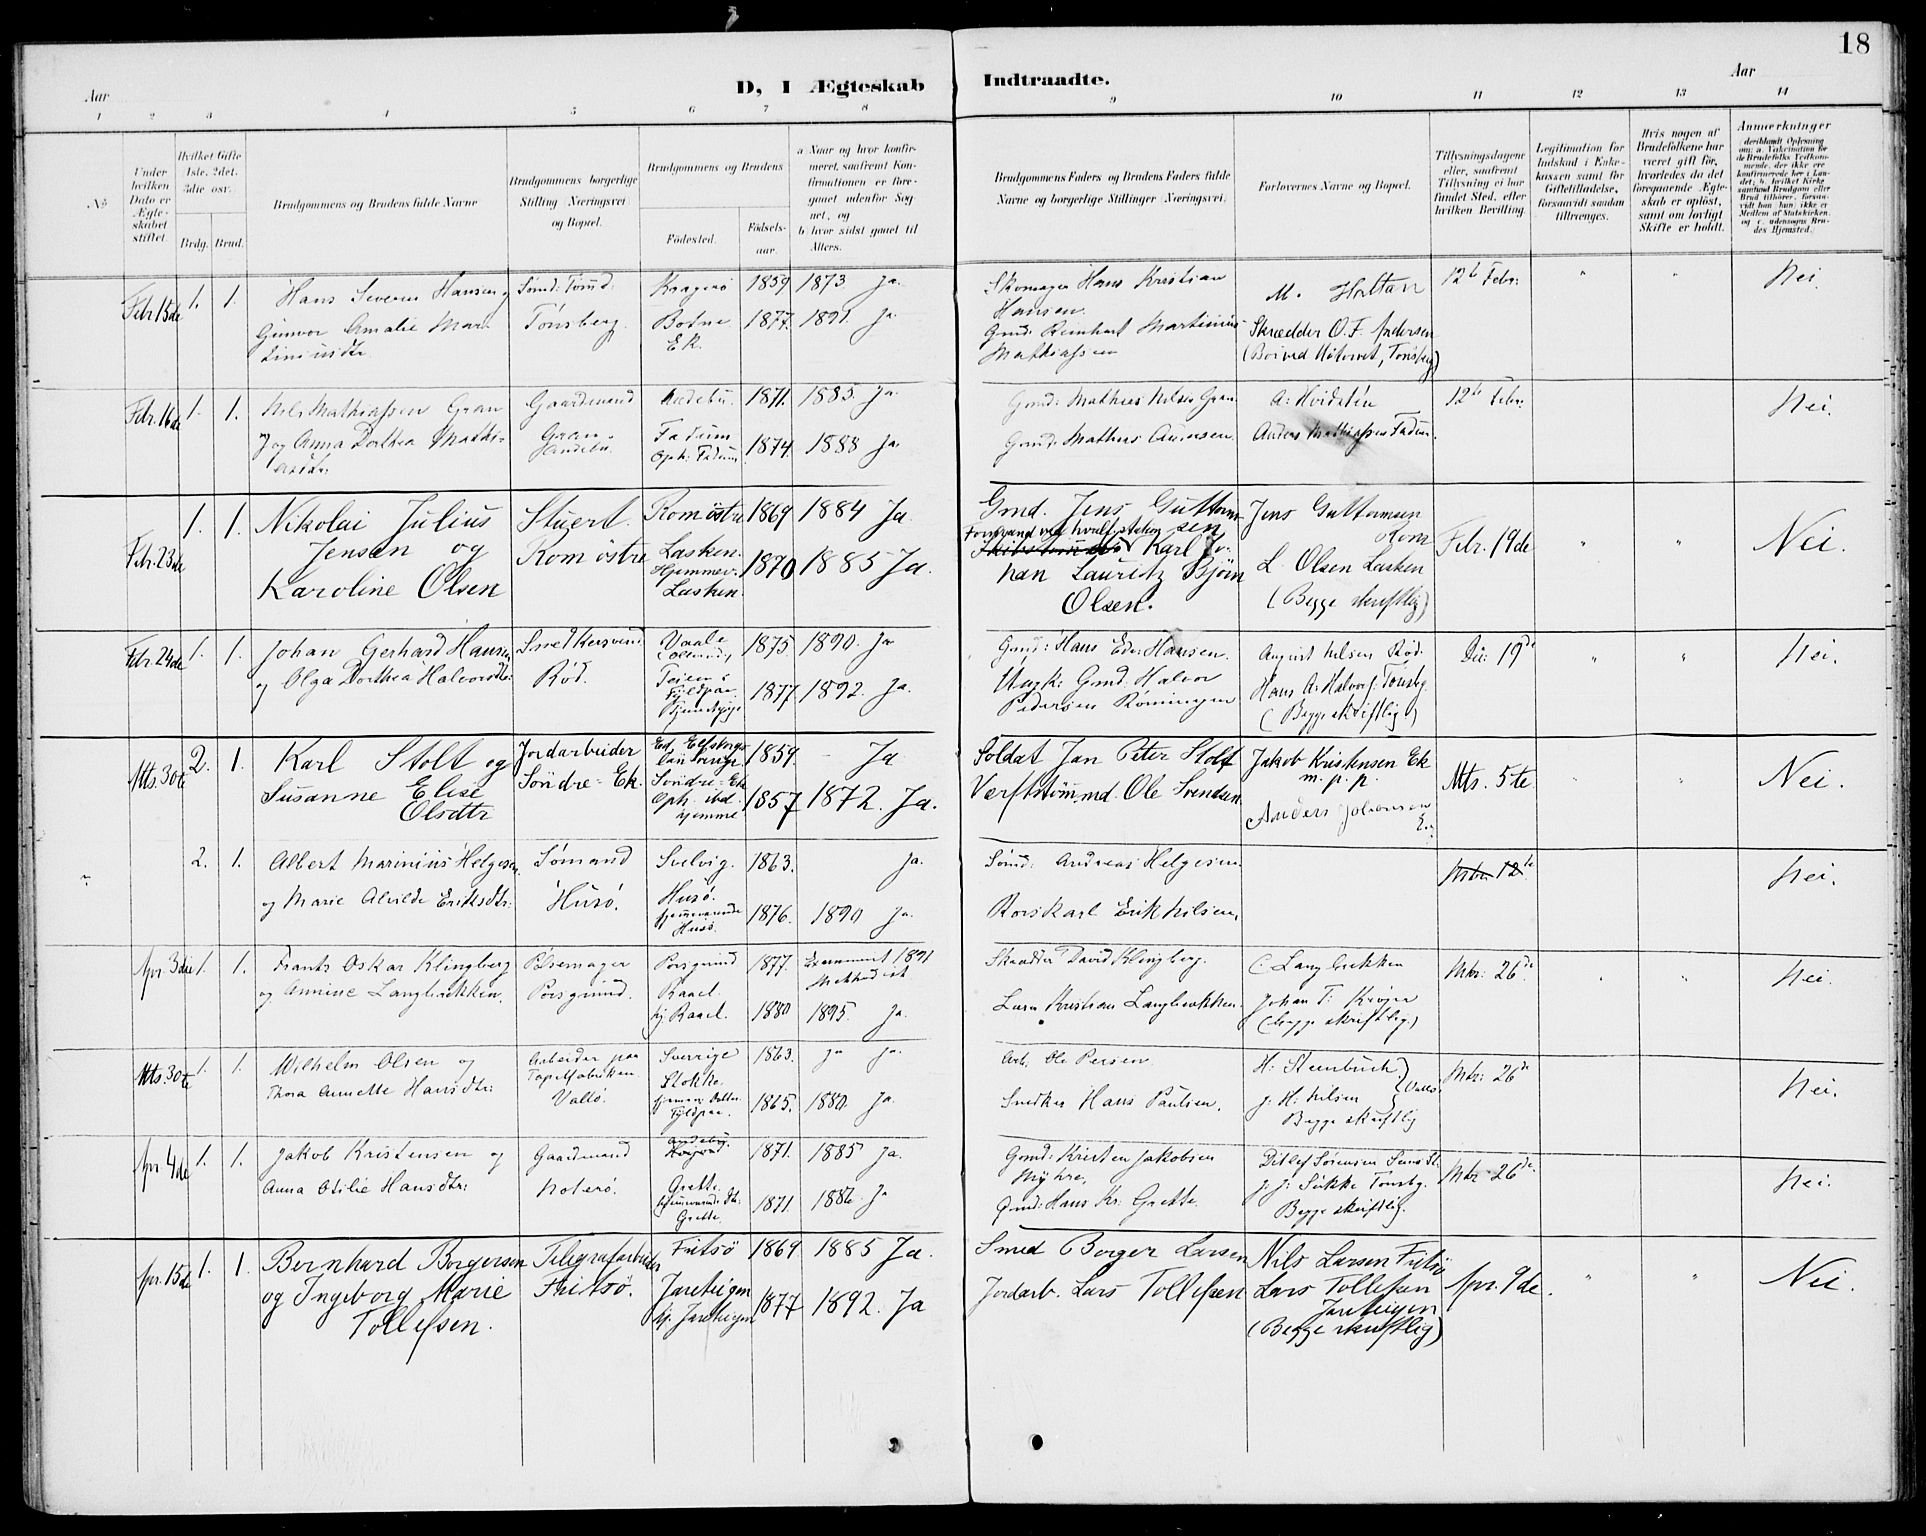 18
D, I Ægteskab Indtraadte.
Aar
Aar
1 2 3 4 5 6 7 8 9 10 11 12 13 14
No
Under hvilken Dato er Ægteskabet stiftet.
Hvilket Gifte 1ste. 2det. 3die osv.
Brdg. Brud.
Brudgommens og Brudens fulde Navne
Brudgommens borgerlige Stilling Næringsvei og Bopæl.
Brudgommens og Brudens
Fødested.
Fødselsaar.
a Naar og hvor konfirmeret, saafremt Konfirmationen er foregaaet udenfor Sognet, og
b hvor sidst gaaet til Alters.
Brudgommens Faders og Brudens Faders fulde Navne og borgerlige Stillinger Næringsvei.
Forlovernes Navne og Bopæl.
Tillysningsdagene eller, saafremt Tillysning ei har fundet Sted, efter hvilken Bevilling.
Legitimation for Indskud i Enkekassen samt for Giftetilladelse, forsaavidt saadan tiltrænges.
Hvis nogen af Brudefolkene har været gift før, hvorledes da det foregaaende Ægteskab er opløst, samt om lovligt Skifte er holdt.
Anmærkninger
Febr. 15de 1. 1.
Hans Severin Hansen og
Gunvor Amalie Mar-
tinusdtr.
Sømd: Tømd:
Tönsberg.
Kragerø 1859 1873 Ja.
Botne 1877. 1891. Ja
Ek.
Skomager Hans Kristian
Hansen.
Gmd: Reinhart Martinius
Mathiassen
M. Holtan
Skrædder O. F. Andersen
(Boi ved Nötorvet, Tönsberg)
12te Febr:
"
"
Nei.
Febr. 16de 1. 1.
Nils Mathiassen Gran
og Anna Dorthea Mathi-
asdtr:
Gaardmand
Gran.
Andebu.
Andebu. 1871. 1885. Ja
Fadum
Oph: Fadum 1874. 1888 Ja
Gmd: Mathias Nilsen Gran.
Gmd: Mathias Aunesen.
A: Hvidstén
Anders Mathiassen Fadum.
12te Febr:
Nei.
Febr. 23de 1. 1.
Nikolai Julius
Jensen og
Karoline Olsen
Stuert.
Rom östre
Rom östre 1869 1884 Ja
Lasken.
Hjemmev.
Lasken. 1870 1885 Ja.
Gmd. Jens Guttorm-
sen
Formand ved hvalstation
Karl Jo-
han Lauritz Bjørn
Olsen.
Jens Guttormsen
Rom
L. Olsen Lasken
(Begge skriftlig)
Febr. 19de
"
"
Nei.
Febr. 24de 1. 1.
Johan Gerhard Hansen
og Olga Dorthea Halvorsdtr:
Snedkersvend
Röd.
Vaale 1875 1890. Ja
Teien i
1877. 1892. Ja.
Gmd: Hans Edv: Hansen.
Ungk: Gmd. Halvor
Pedersen Rømingen
August Nilsen Röd.
Hans A: Halvors. Tönsbg.
(Begge skriftlig)
Do: 19de
"
"
Nei.
Mts. 30te 2. 1.
Karl Stolt og
Susanne Elise
Olsdtr
Jordarbeider
Söndre-Ek.
Ed Elfsborgs
Län Sverige 1859. - Ja
Söndre-Ek
Oph. ibd.
hjemme 1857 1872. Ja.
Soldat Jan Peter Stolt
Værftstömmd. Ole Svendsen.
Jakob Kristensen Ek
m. p. p.
Anders Johansen
Ek
Mts. 5te
"
"
Nei.
2. 1.
Albert Marinius Helgesen
og Marie Alvilde Eriksdtr:
Sømand
Husö.
Svelvig. 1863. Ja.
Husö.
hjemmeværende
Husö 1876. 1890 Ja.
Sömd: Andreas Helgesen.
Rorskarl Erik Nilsen,
Mts. 12te
Nei.
Apr. 3die 1. 1.
Frants Oskar Klingberg
og Annine Langbakken.
Pölsemager
Porsgrund.
Porsgrund 1877. 1891
Methodist
Raael.
hj. Raael. 1880 1895. Ja.
Skrædder David Klingberg.
Lars Kristian Langbakken.
C. Langbakken
Johan T: Krøjer
(begge skriftlig)
Mts: 26de
"
"
Nei.
Mts. 30te 1. 1.
Wilhelm Olsen og
Thora Annette Hansdtr:
Arbeider paa
Tapetfabriken
Vallö.
Sverrige 1863. ja Ja.
Stokke.
1865. 1880. Ja.
Arb. Ole Persen.
Snedker Hans Paulsen.
H: Steenbuch
J. H: Nilsen
Vallö
Begge skriftlig
Mts: 26de
Nei.
Apr. 4de 1. 1.
Jakob Kristensen og
Anna Otilie Hansdtr:
Gaardmand
Noterö.
Andebu. 1871. 1885 Ja.
Grette.
Grette. 1871. 1886 Ja
Gmd: Kristen Jakobsen
Myhre.
Gmd: Hans Kr. Grette.
Ditlef Sørensen
J. J: Sükke Tönsbg.
Begge skriftlig.
Mts 26de
Nei.
Apr. 15de 1. 1.
Bernhard Borgersen
og Ingeborg Marie
Tollefsen.
Telegrafarbeider
Fritsö.
Fritsö 1869 1885 Ja.
Jareteigen
hj. Jareteigen 1877 1892. Ja
Smed Borger Larsen
Jordarb. Lars Tollefsen
Nils Larsen Fritsö
Lars Tollefsen
Jareteigen
(Begge skriftlig)
Apr. 9de.
"
"
Nei.